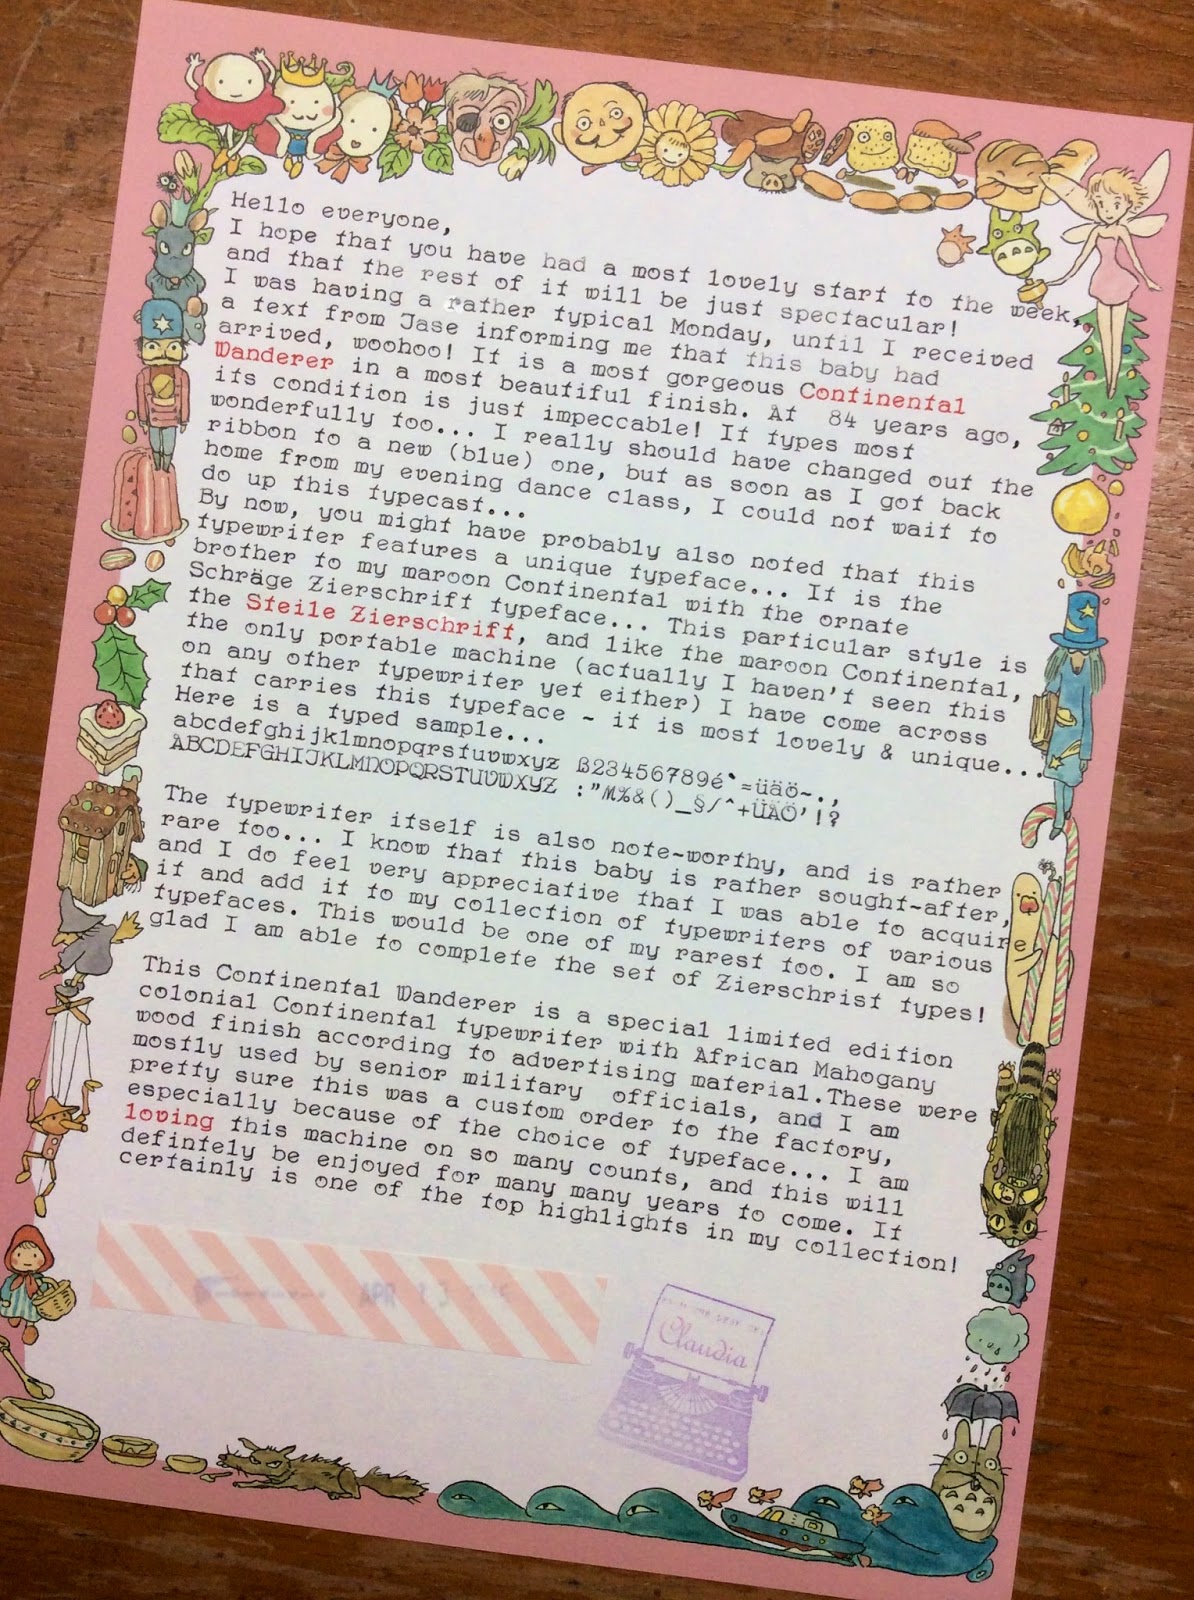 Hello everyone,
I hope that you have had a most lovely start to the week,
and that the rest of it will be just spectacular!
I was having a rather typical Monday, until I received
a text from Jase informing me that this baby had
arrived, woohoo! It is a most gorgeous Continental
Wanderer in a most beautiful finish. At  84 years ago,
its condition is just impeccable! It types most
wonderfully too... I really should have changed out the
ribbon to a new (blue) one, but as soon as I got back
home from my evening dance class, I could not wait to
do up this typecast...
By now, you might have probably also noted that this
typewriter features a unique typeface... It is the
brother to my maroon Continental with the ornate
Schräge Zierschrift typeface... This particular style is
the Steile Zierschrift, and like the maroon Continental,
the only portable machine (actually I haven't seen this
on any other typewriter yet either) I have come across
that carries this typeface - it is most lovely & unique...
Here is a typed sample...
abcdefghijklmnopqrstuvwxyz ß23456789é`=üäö-.,
ABCDEFGHIJKLMNOPQRSTUVWXYZ :"M%&()_§/^+ÜÄÖ'!?
The typewriter itself is also note-worthy, and is rather
rare too... I know that this baby is rather sought-after,
and I do feel very appreciative that I was able to acquire
it and add it to my collection of typewriters of various
typefaces. This would be one of my rarest too. I am so
glad I am able to complete the set of Zierschrist types!
This Continental Wanderer is a special limited edition
colonial Continental typewriter with African Mahogany
wood finish according to advertising material.These were
mostly used by senior military  officials, and I am
pretty sure this was a custom order to the factory,
especially because of the choice of typeface... I am
loving this machine on so many counts, and this will
defintely be enjoyed for many many years to come. It
certainly is one of the top highlights in my collection!
APR 13
Claudia